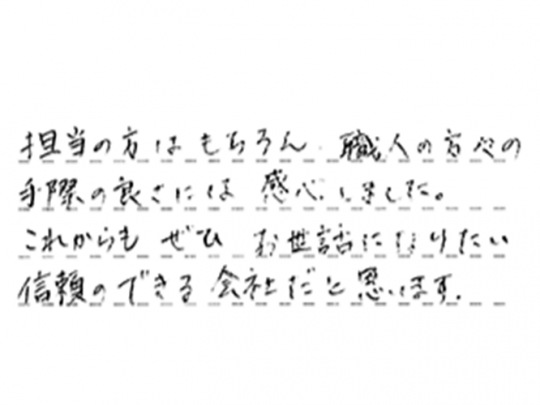 担当の方はもちろん、職人の方々の
手際の良さには 感心しました。
これからも ぜひ お世話になりたい
信頼のできる 会社だと思います。